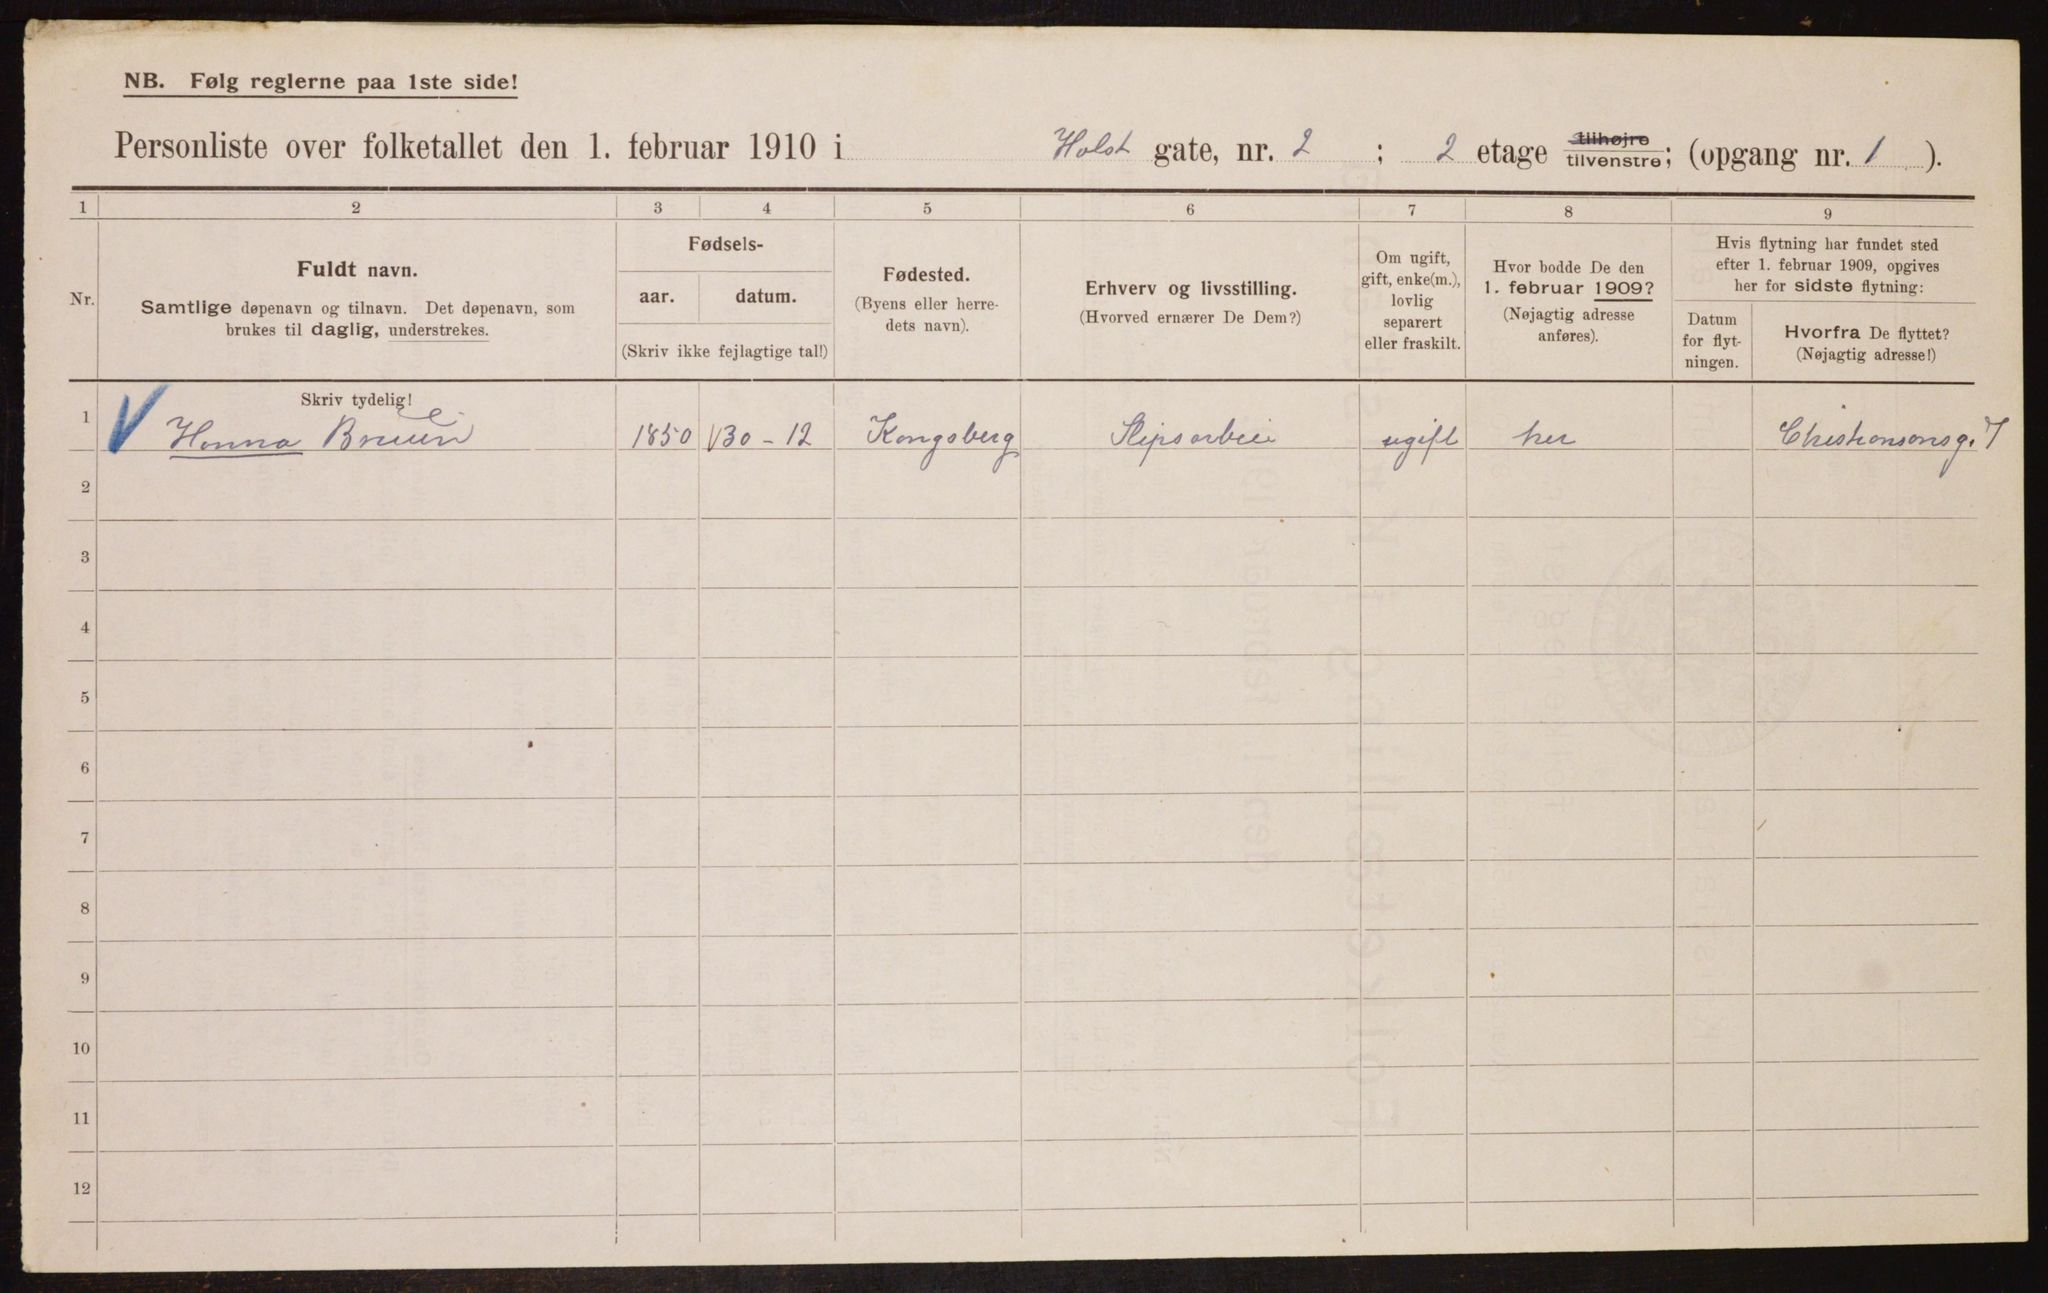 NB. Følg reglerne paa 1ste side!
Personliste over folketallet den 1. februar 1910 i Holst gate, nr. 2 ; 2 etage tilhøjre tilvenstre; (opgang nr. 1 ).
1 2 3 4 5 6 7 8 9
Nr.
Fuldt navn.
Samtlige døpenavn og tilnavn. Det døpenavn, som
brukes til daglig, understrekes.
Fødsels-
aar. datum.
(Skriv ikke fejlagtige tal!)
Fødested.
(Byens eller herre-
dets navn).
Erhverv og livsstilling.
(Hvorved ernærer De Dem?)
Om ugift,
gift, enke(m.),
lovlig
separert
eller fraskilt.
Hvor bodde De den
1. februar 1909?
(Nøjagtig adresse
anføres).
Hvis flytning har fundet sted
efter 1. februar 1909, opgives
her for sidste flytning:
Datum
for flyt-
ningen.
Hvorfra De flyttet?
(Nøjagtig adresse!)
Skriv tydelig!
1 Hanna Bruun 1850 30 - 12 Kongsberg Slipsarbeie ugift her Christiansonsg. 7
2
3
4
5
6
7
8
9
10
11
12